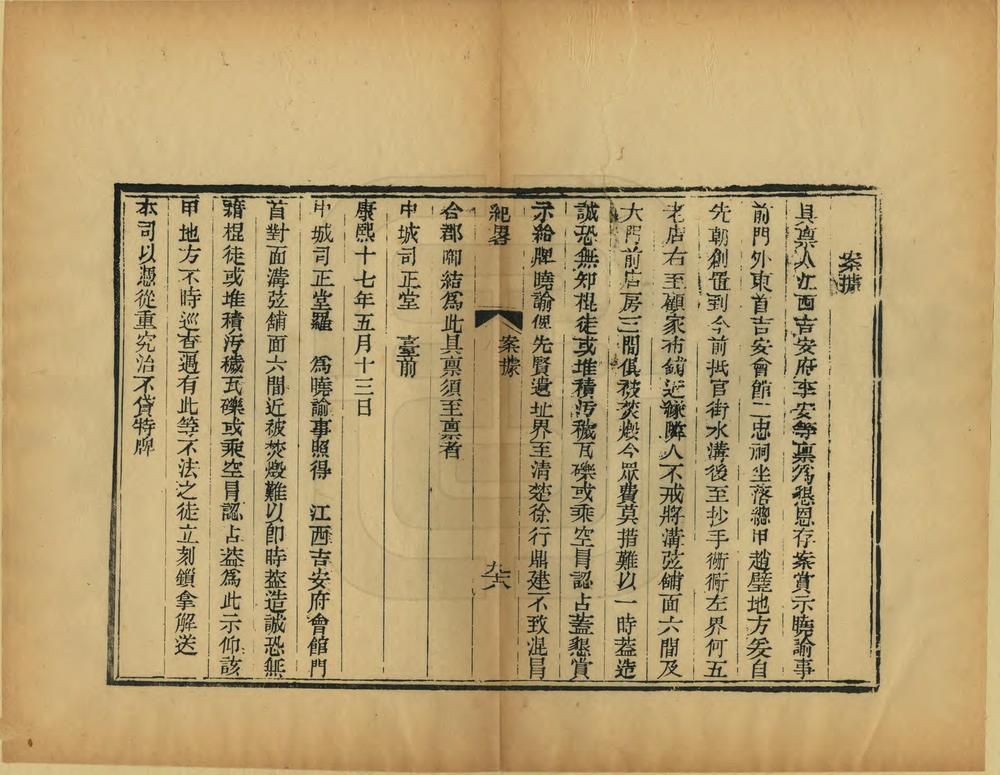 案據
具稟人江西吉安府李安等稟爲懇恩存案賞示曉諭事
前門外東首吉安會館二忠祠坐落總甲趙璧地方矣自
先朝創置到今前抵官街水溝後至抄手衚衕左界何五
老店右至顧家布鋪近緣隣人不戒將溝弦鋪面六間及
大門前店房三間俱被焚燬今眾費莫措難以一時葢造
誠恐無知棍徒或堆積汚穢瓦礫或乘空冐認占葢懇賞
示給牌曉諭俾先賢遺址界至清楚徐行鼎建不致混冐
紀畧
案據
九六
合郡啣結爲此具稟須至稟者
中城司正堂 臺前
康熙十七年五月十三日
中城司正堂羅 爲曉諭事照得 江西吉安府會館門
首對面溝弦鋪面六間近被焚燬難以卽時葢造誠恐無
藉棍徒或堆積汚穢瓦礫或乘空冐認占葢爲此示仰該
甲地方不時巡查遇有此等不法之徒立刻鎖拿解送
本司以憑從重究治不貸特牌